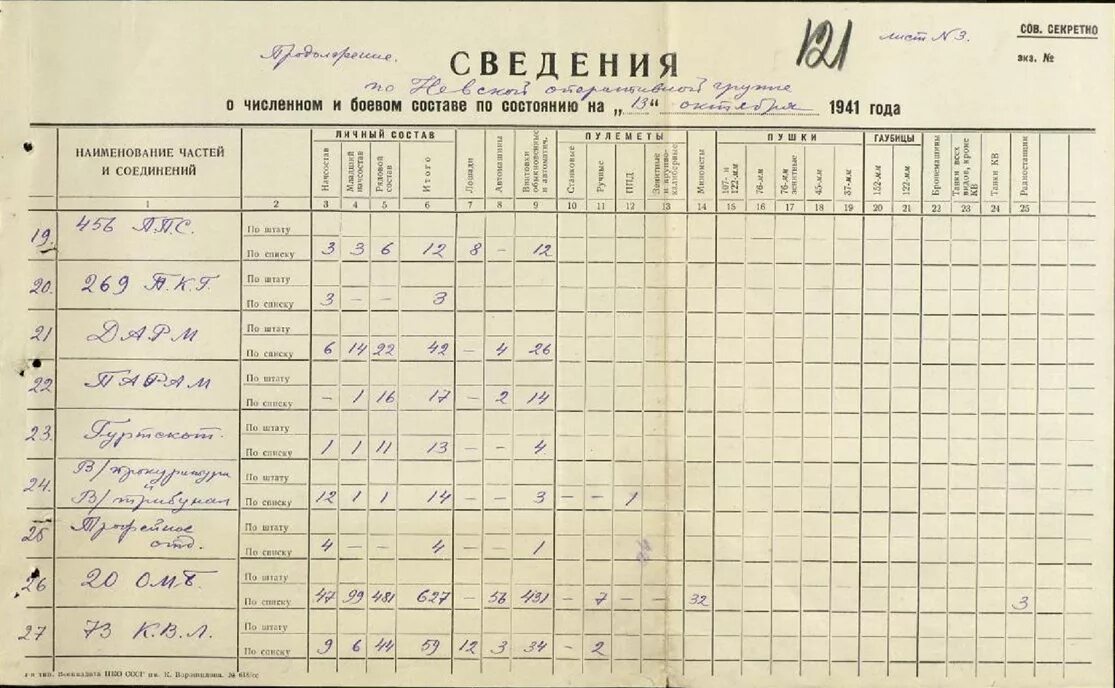 Продолжение.
121
лист N 3.
СОВ. СЕКРЕТНО
экз. №
СВЕДЕНИЯ
по Невской оперативной группе
о численном и боевом составе по состоянию на „13“ октября 1941 года
НАИМЕНОВАНИЕ ЧАСТЕЙ И СОЕДИНЕНИЙ
ЛИЧНЫЙ СОСТАВ
Начсостав
Младший начсостав
Рядовой состав
Итого
Лошади
Автомашины
Винтовки обыкновенные и автоматич.
ПУЛЕМЕТЫ
Станковые
Ручные
ППД
Зенитные и крупнокалиберные
Минометы
ПУШКИ
107- и 122-мм
76-мм
76-мм зенитные
45-мм
37-мм
ГАУБИЦЫ
152-мм
122-мм
Бронемашины
Танки всех видов, кроме КВ
Танки КВ
Радиостанции
1 2 3 4 5 6 7 8 9 10 11 12 13 14 15 16 17 18 19 20 21 22 23 24 25
19. 456 П.П.С. По штату
По списку 3 3 6 12 8 – 12
20. 269 П.К.Г. По штату
По списку 3 – – 3
21 ДАРМ По штату
По списку 6 14 22 42 – 4 26
22 ПАРАМ По штату
По списку – 1 16 17 – 2 14
23. Гуртскот. По штату
По списку 1 1 11 13 – – 4
24. В/прокуратура По штату
и
В/трибунал По списку 12 1 1 14 – – 3 – – 1
25 Трофейное По штату
отд. По списку 4 – – 4 – – 1
26 20 ОМБ. По штату
По списку 47 99 481 627 – 56 431 – 7 – – 32 3
27 73 К.В.Л. По штату
По списку 9 6 44 59 12 3 34 – 2
тип. Воениздата НКО СССР им. К. Ворошилова. № 618/сс